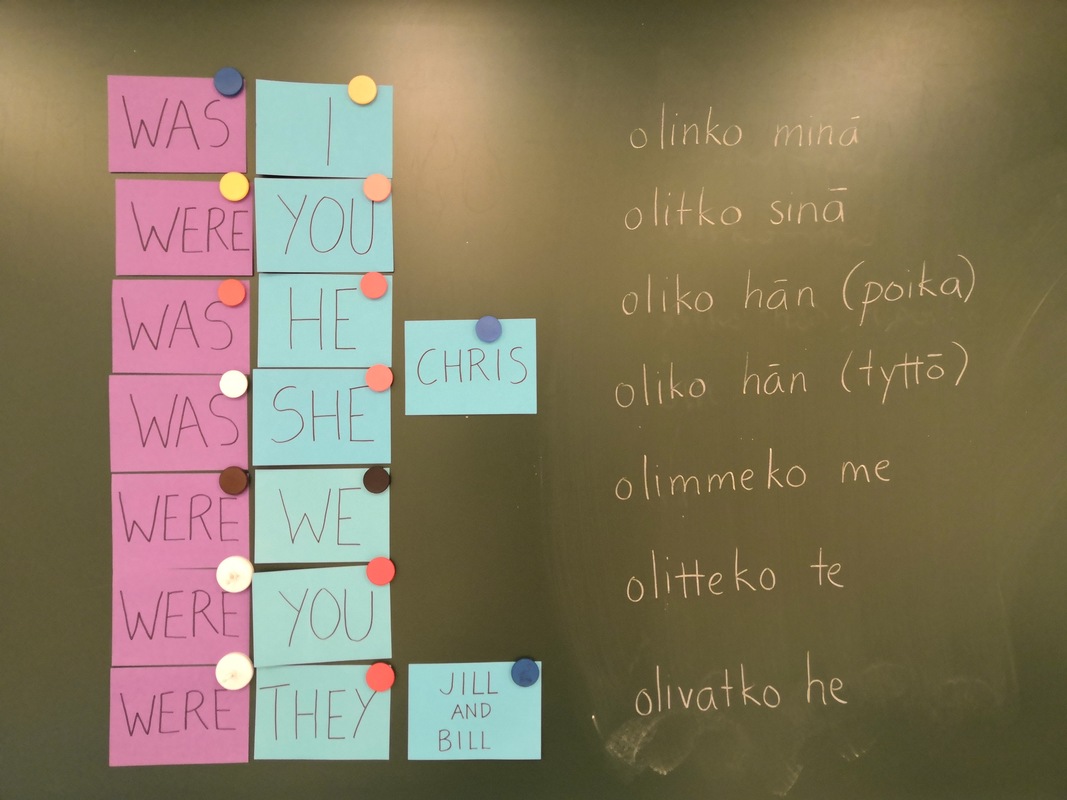 WAS I olinko minä
WERE YOU olitko sinä
WAS HE oliko hän (poika)
CHRIS
WAS SHE oliko hän (tyttö)
WERE WE olimmeko me
WERE YOU olitteko te
WERE THEY JILL AND BILL olivatko he